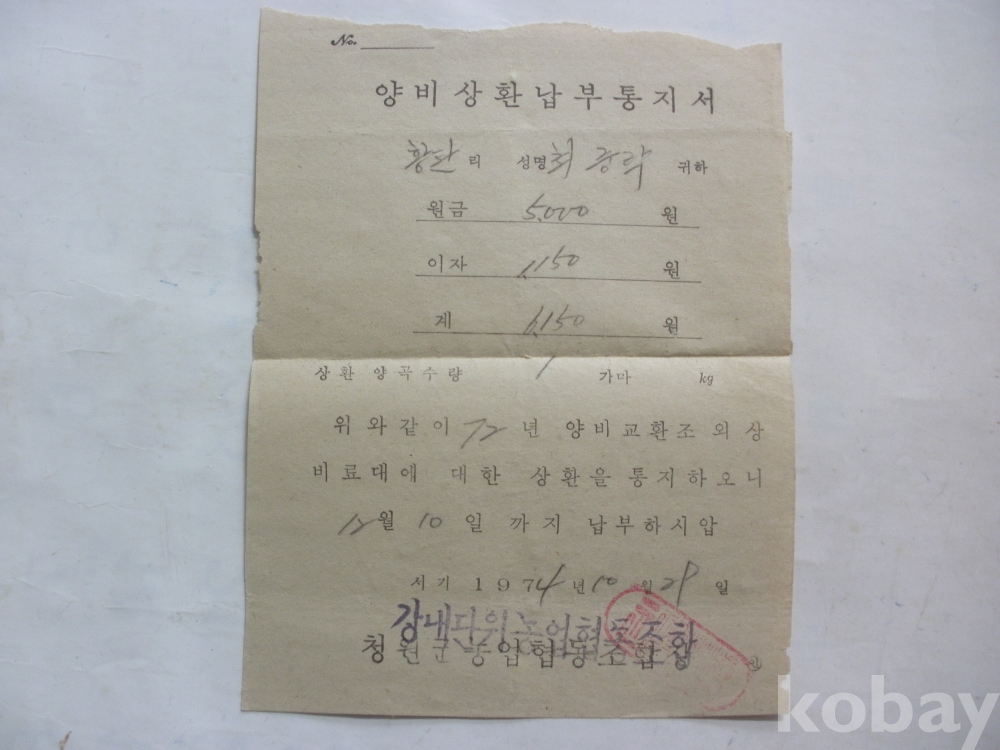 No.
양비상환납부통지서
황탄리 성명 최종락 귀하
원금 5,000 원
이자 1,150 원
계 6,150 원
상환 양곡수량 1 가마 kg
위와같이 72년 양비교환조 외상
비료대에 대한 상환을 통지하오니
12월 10일 까지 납부하시압
서기 1974년 10월 29일
강내단위농업협동조합
청원군농업협동조합장
kobay